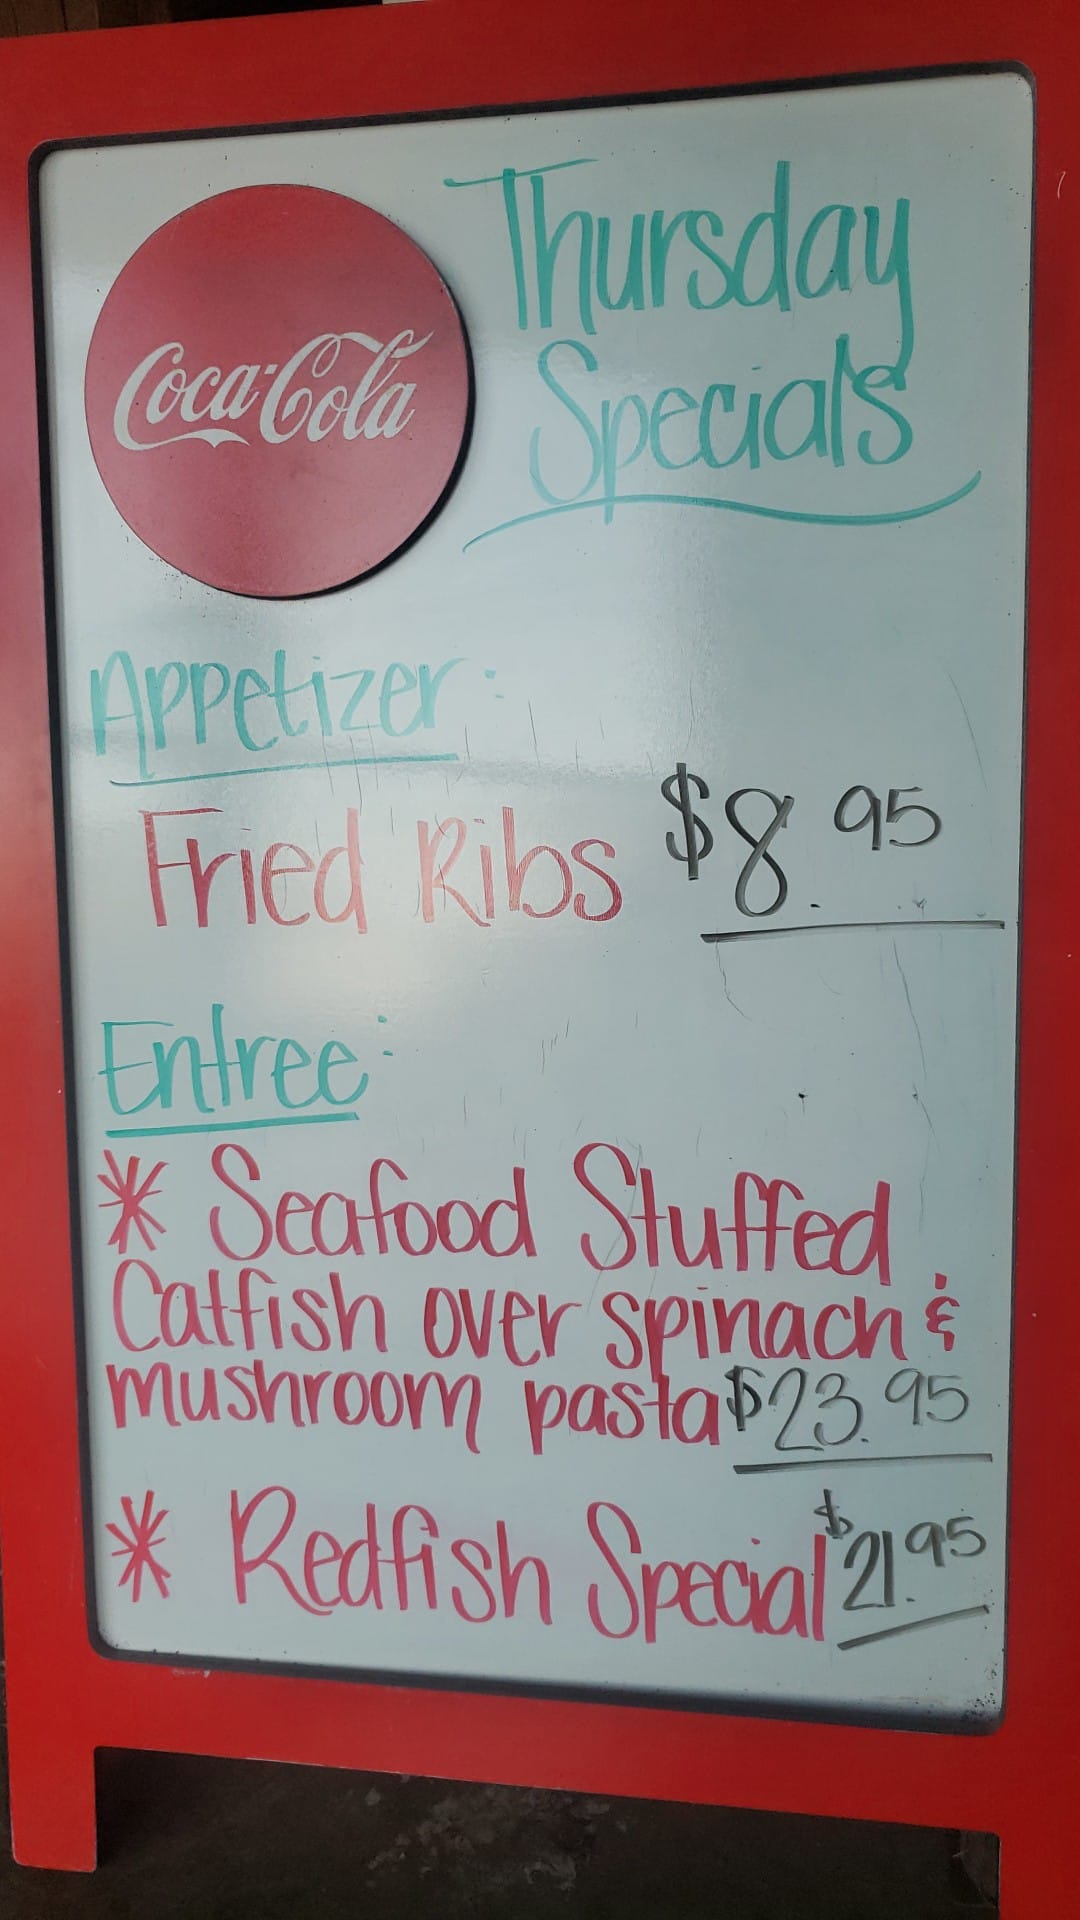 Coca-Cola
Thursday
Specials
Appetizer:
Fried Ribs $8.95
Entree:
* Seafood Stuffed
Catfish over spinach &
mushroom pasta $23.95
* Redfish Special $21.95